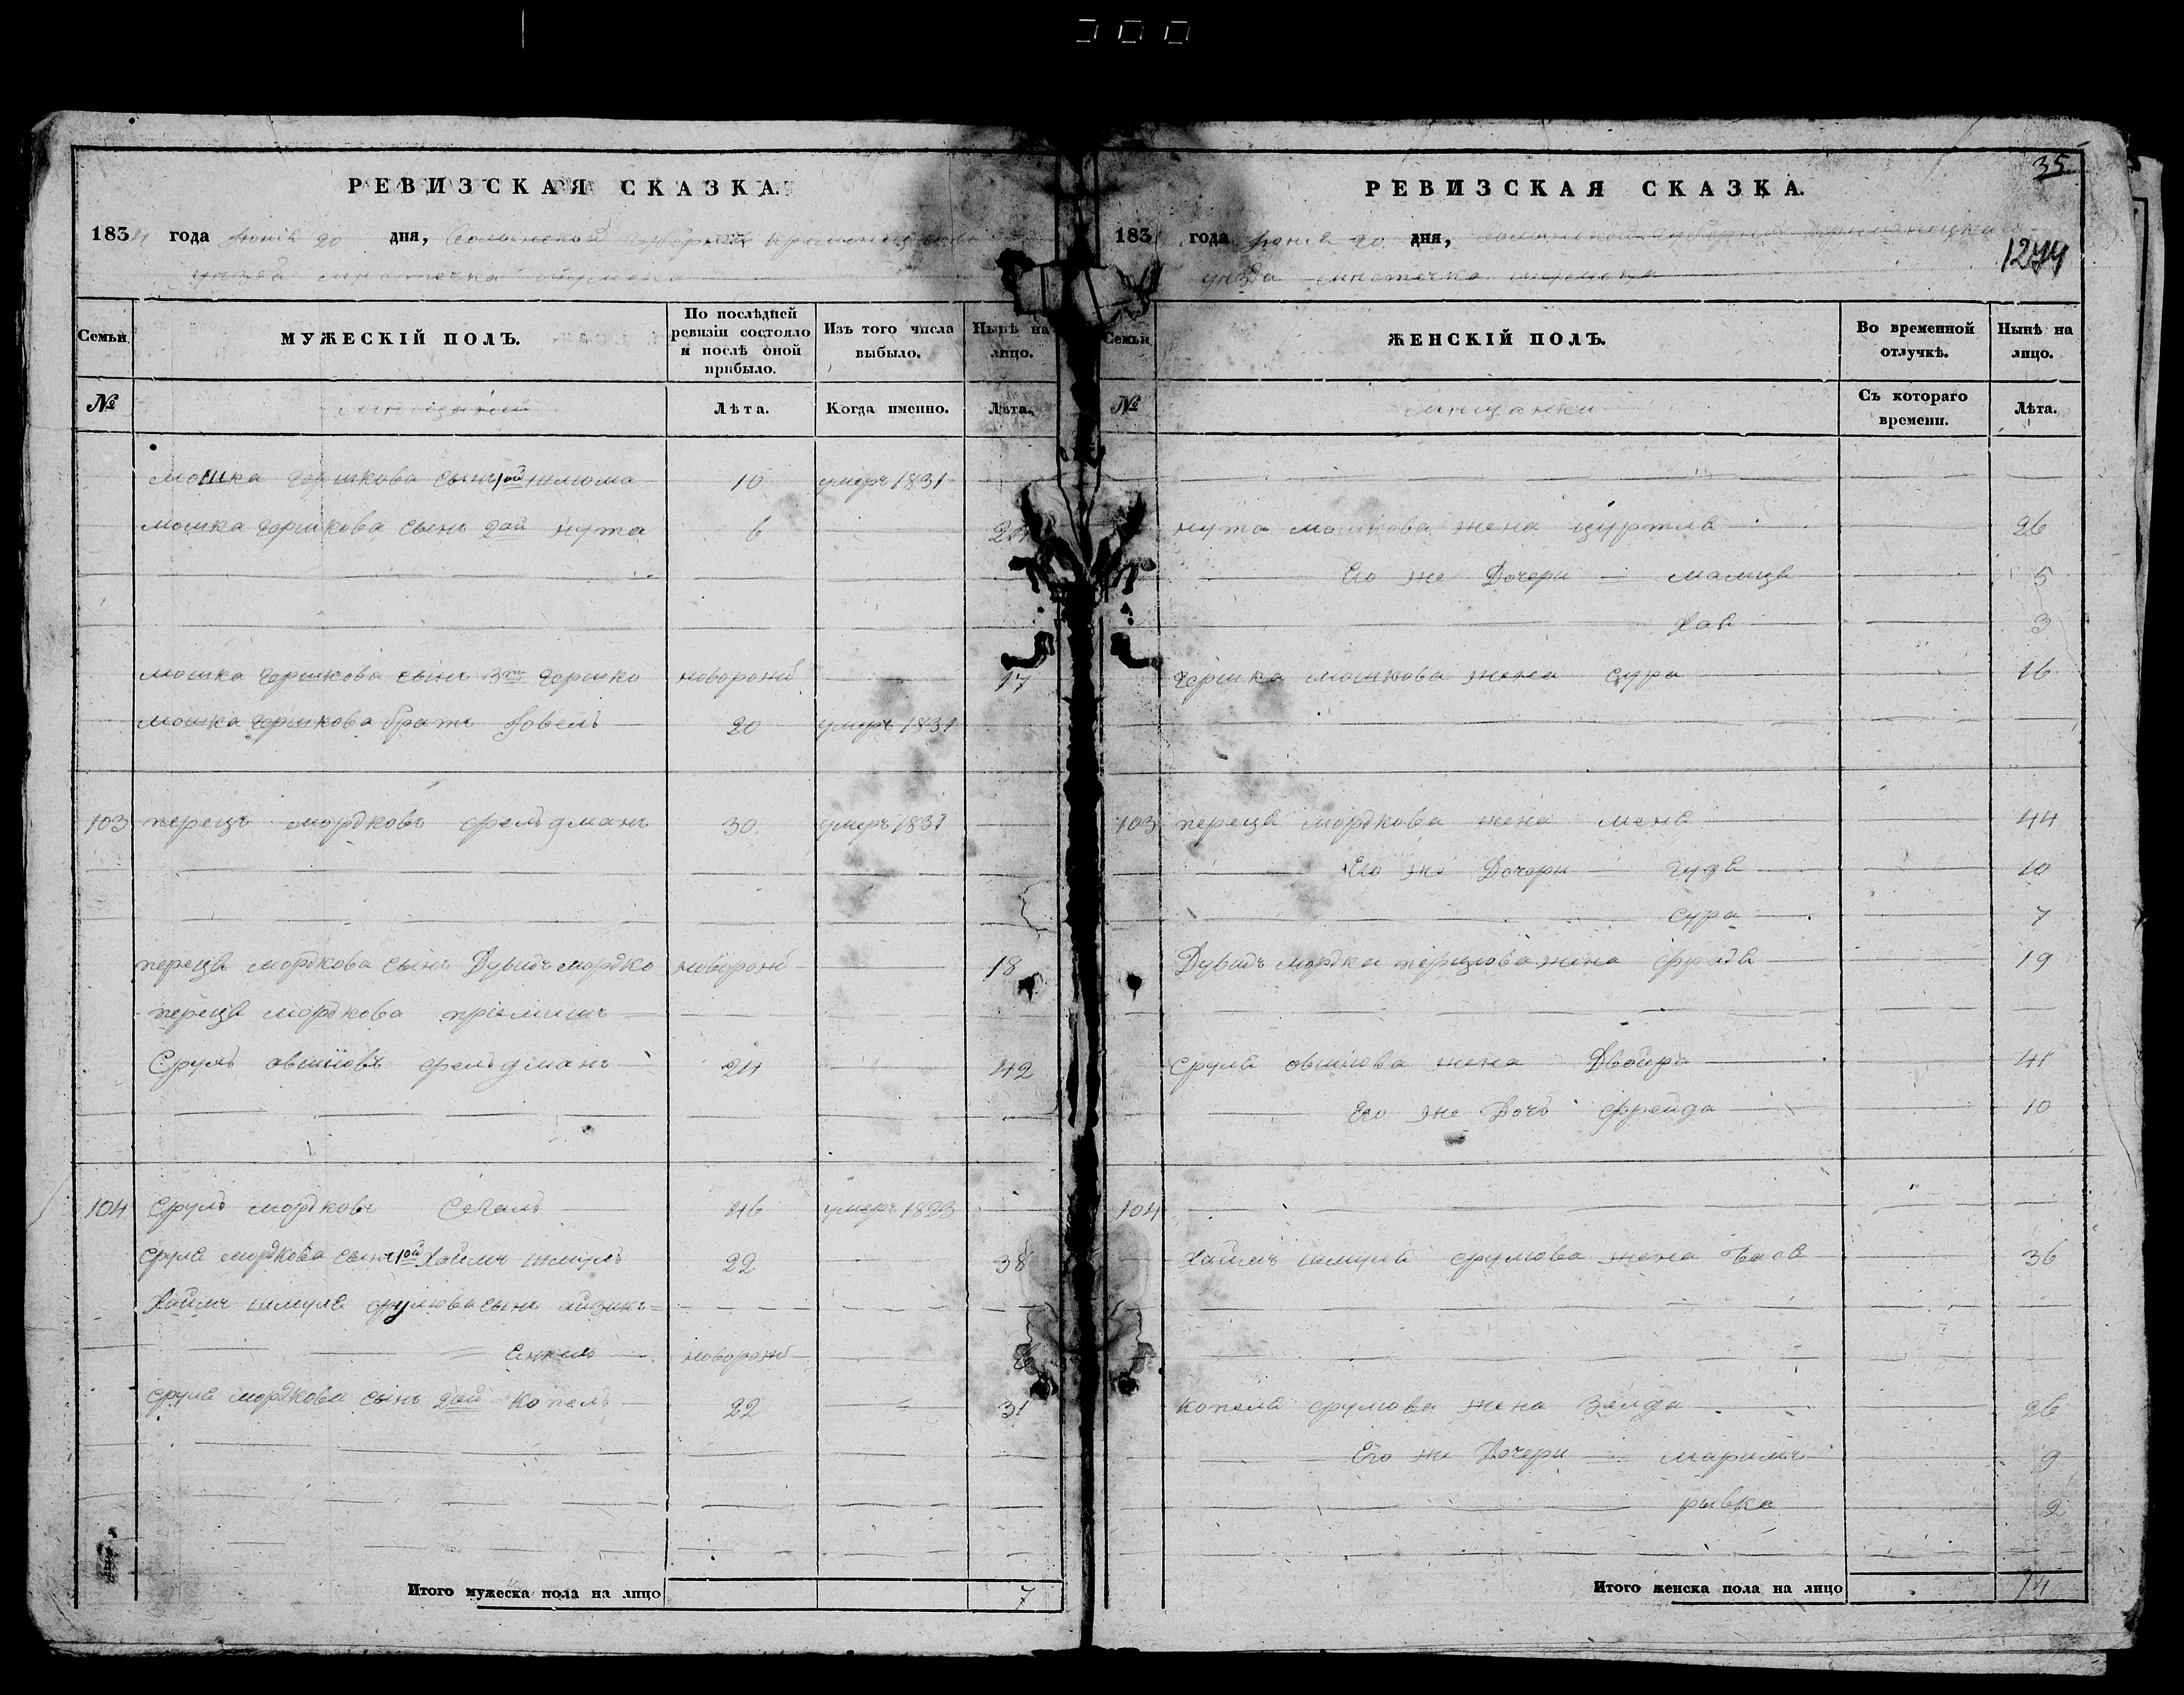 РЕВИЗСКАЯ СКАЗКА.
1834 года Юнія 20 дня, Волынской губерніи Кременецкаго
уезда местечка
Семьи
МУЖЕСКІЙ ПОЛЪ.
По послѣдней ревизіи состояло и послѣ оной прибыло.
Изъ того числа выбыло.
Нынѣ на лицо.
№
мещаны
Лѣта.
Когда именно.
Лѣта.
мошка гершкова сынъ 1ой шлюма 10 умеръ 1831
мошка гершкова сынъ 2ой нута 6 24
мошка гершкова сынъ 3ій гершко новорожд 17
мошка гершкова братъ Іовель 20 умеръ 1831
103 перецъ мордковъ фельдманъ 30 умеръ 1831
переца мордкова сынъ Дувидъ мордко новорожд 18
переца мордкова приемишъ
Сруль овшіовъ фельдманъ 24 42
104 Сруль мордковъ Сегаль 46 умеръ 1823
Сруля мордкова сынъ 1ой Хаимъ шмуль 22 38
Хаимъ шмуля срулюва сынъ айзикъ
Енкель новорожд
сруля мордкова сынъ 2ой Копель 22 31
Итого мужеска пола на лицо 7
35
РЕВИЗСКАЯ СКАЗКА.
183 года Юнія 20 дня, Волынской губерніи Кременецкаго
1244
уезда местечка
Семьи
ЖЕНСКІЙ ПОЛЪ.
Во временной отлучкѣ.
Нынѣ на лицо.
№
мещанки
Съ котораго времени.
Лѣта.
нута мошкова жена цуртля 26
Его же Дочери малиця 5
Хая 3
гершка мошкова жена сура 16
103 переца мордкова жена меня 44
Его же Дочери гудя 10
сура 7
Дувидъ мордки перцюва жена фрадя 19
Сруля овшіова жена Двойра 41
Его же Дочь фрейда 10
104
Хаимъ шмуля срулюва жена бася 36
копеля срулюва жена Зелда 26
Его же Дочери маримъ 9
рывка 2
Итого женска пола на лицо 14